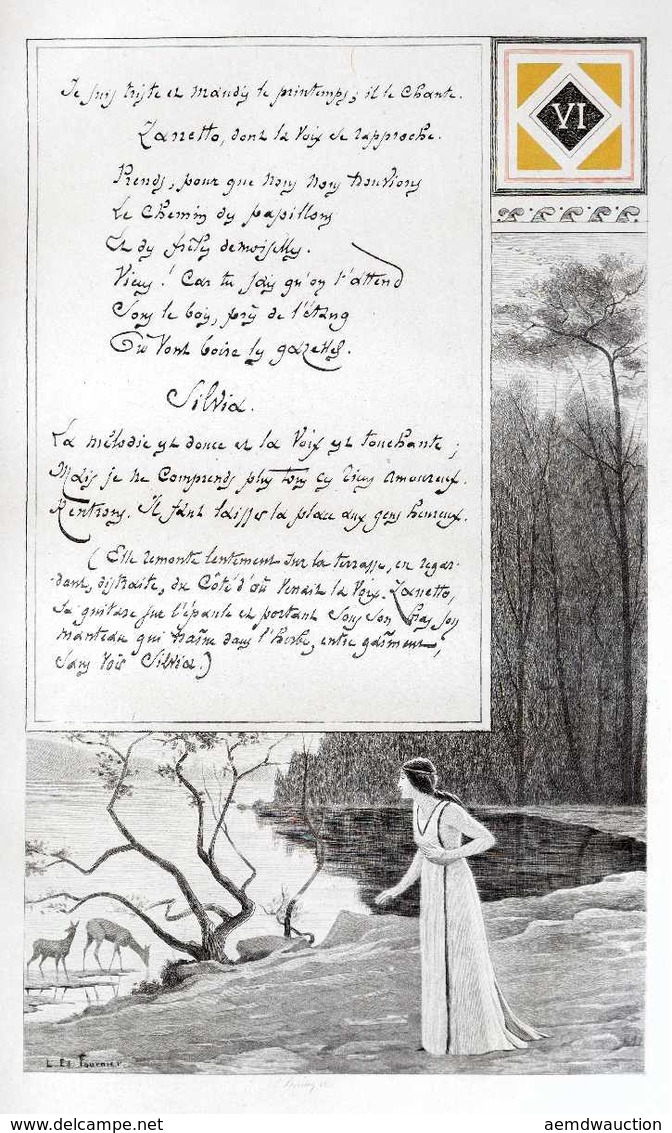 VI
Je suis triste et maudis le printemps ; il le chante.
Zanetto, dont la voix se rapproche.
Prends, pour que nous nous trouvions
Le chemin des papillons
Et des frêles demoiselles.
Viens ! Car tu sais qu'on t'attend
Sous le bois, près de l'étang
Où vont boire les gazelles.
Silvia.
La mélodie est douce et la voix est touchante ;
Mais je ne comprends plus tous ces riens amoureux.
Rentrons. Il faut laisser la place aux gens heureux.
( Elle remonte lentement sur la terrasse, en regar-
dant, distraite, du côté d'où venait la voix. Zanetto,
sa guitare sur l'épaule et portant sous son bras son
manteau qui traîne dans l'herbe, entre gaîment,
sans voir Silvia.)
L. Ed. Fournier.
Picclick - Worldwide
aemdwauction